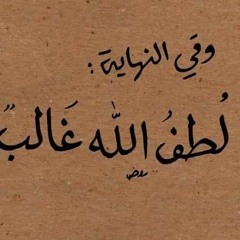 وفي النهاية :
لُطفُ اللّٰه غَالبٌ